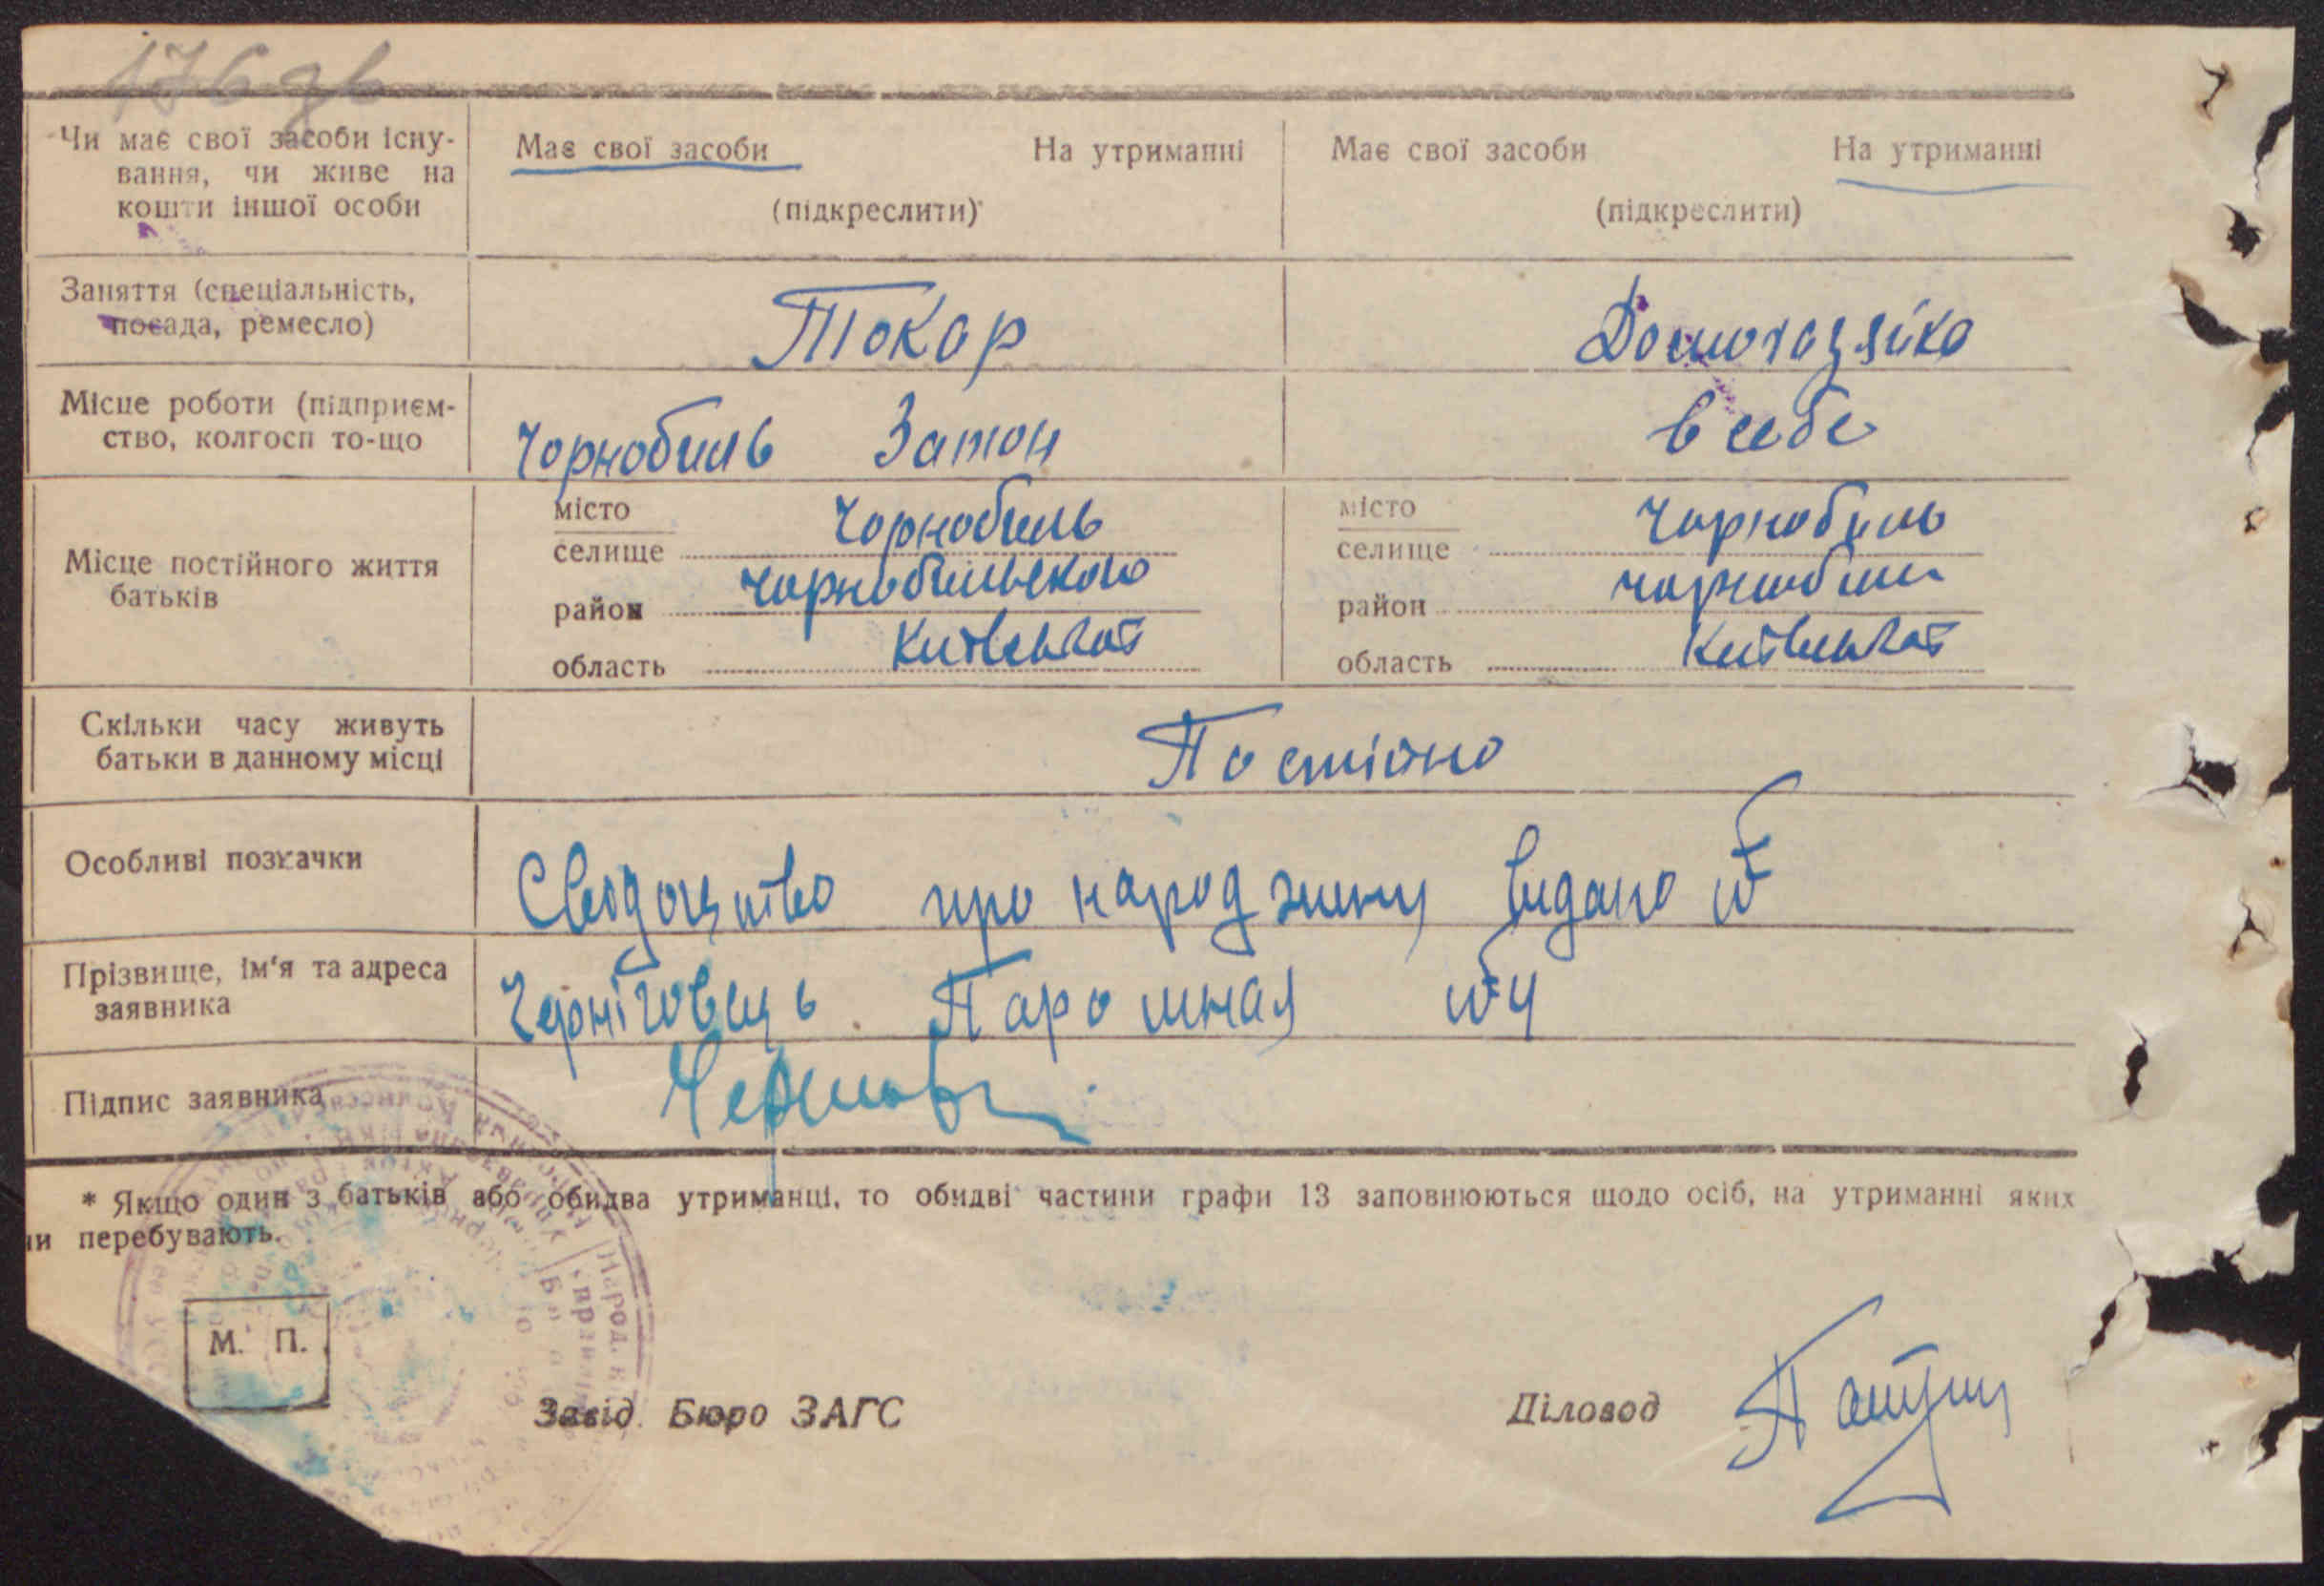 176 зв
Чи має свої засоби існу-
вання, чи живе на
кошти іншої особи
Має свої засоби На утриманні
(підкреслити)
Має свої засоби На утриманні
(підкреслити)
Заняття (спеціальність,
посада, ремесло)
Токар
Домогазяйка
Місце роботи (підприєм-
ство, колгосп то-що
Чорнобиль Затон
в себе
Місце постійного життя
батьків
місто
селище Чорнобиль
район Чорнобильського
область Київської
місто
селище Чорнобиль
район Чорнобил
область Київської
Скільки часу живуть
батьки в данному місці
Постійно
Особливі позначки
Свідоцтво про народжину видано №
Прізвище, ім'я та адреса
заявника
Черніговець №4
Підпис заявника
* Якщо один з батьків або обидва утриманці, то обидві частини графи 13 заповнюються щодо осіб, на утриманні яких
ни перебувають.
М. П.
Завід. Бюро ЗАГС
Діловод